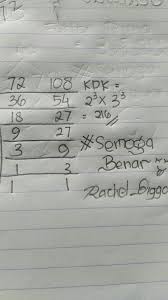 72 108 KDK =
36 54 2³ x 3³
18 27 = 216 //
9 27
3 9 #Semoga
1 3 Benar
1 1 Rachel_Giggo